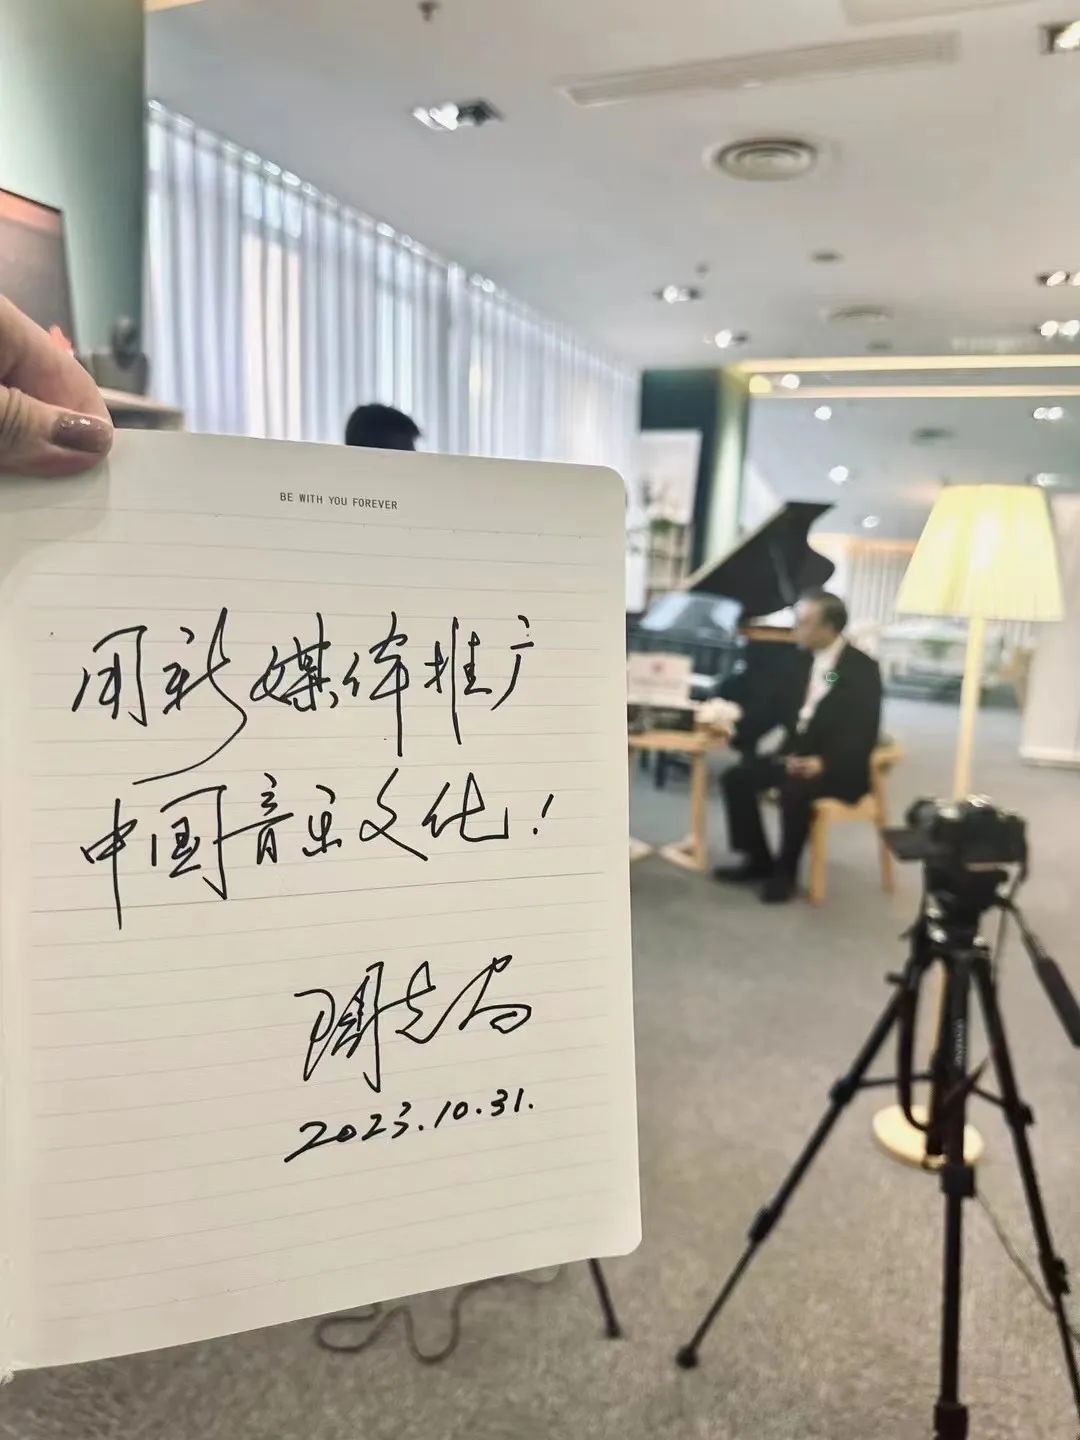 BE WITH YOU FOREVER
用新媒体推广
中国音乐文化!
2023.10.31.